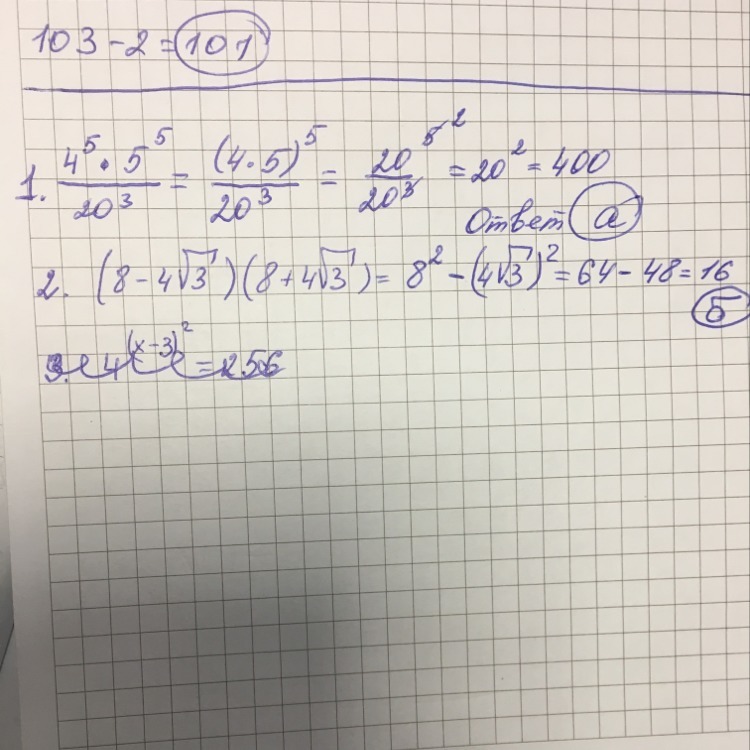 103 - 2 = 101
1. 4^5 · 5^5 / 20^3 = (4 · 5)^5 / 20^3 = 20^5 ^2 / 20^3 = 20^2 = 400
Ответ а
2. (8 - 4√3)(8 + 4√3) = 8^2 - (4√3)^2 = 64 - 48 = 16
б
3. 4^(x-3)^2 = 256